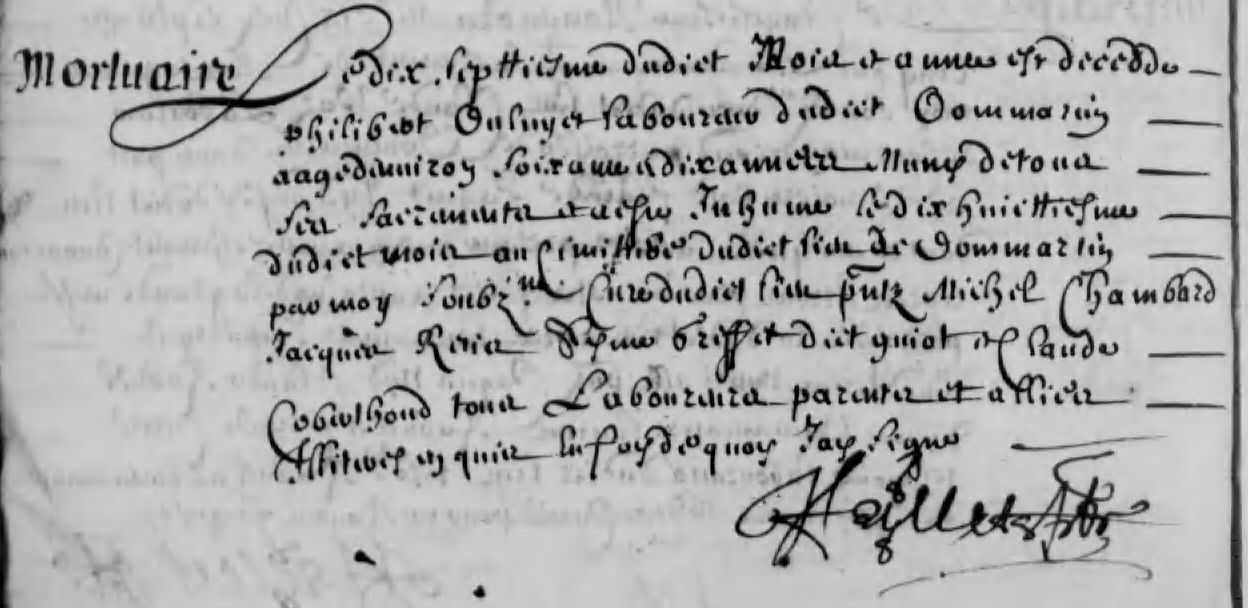 Mortuaire Le dix septtiesme dudict Mois et annee est decedde
philibert laboureur dudict Dommartin
aagé d'environ soixante et dix années Muny de tous
ses sacrements et a esté Inhumé le dix huicttiesme
dudict mois au cimittière dudict lieu de Dommartin
par moy soubz.né Curé dudict lieu pntz Michel Chambard
Jacques griffet dict guiot et Claude
tous Laboureurs parents et alliez
en foy de quoy J'ay signé